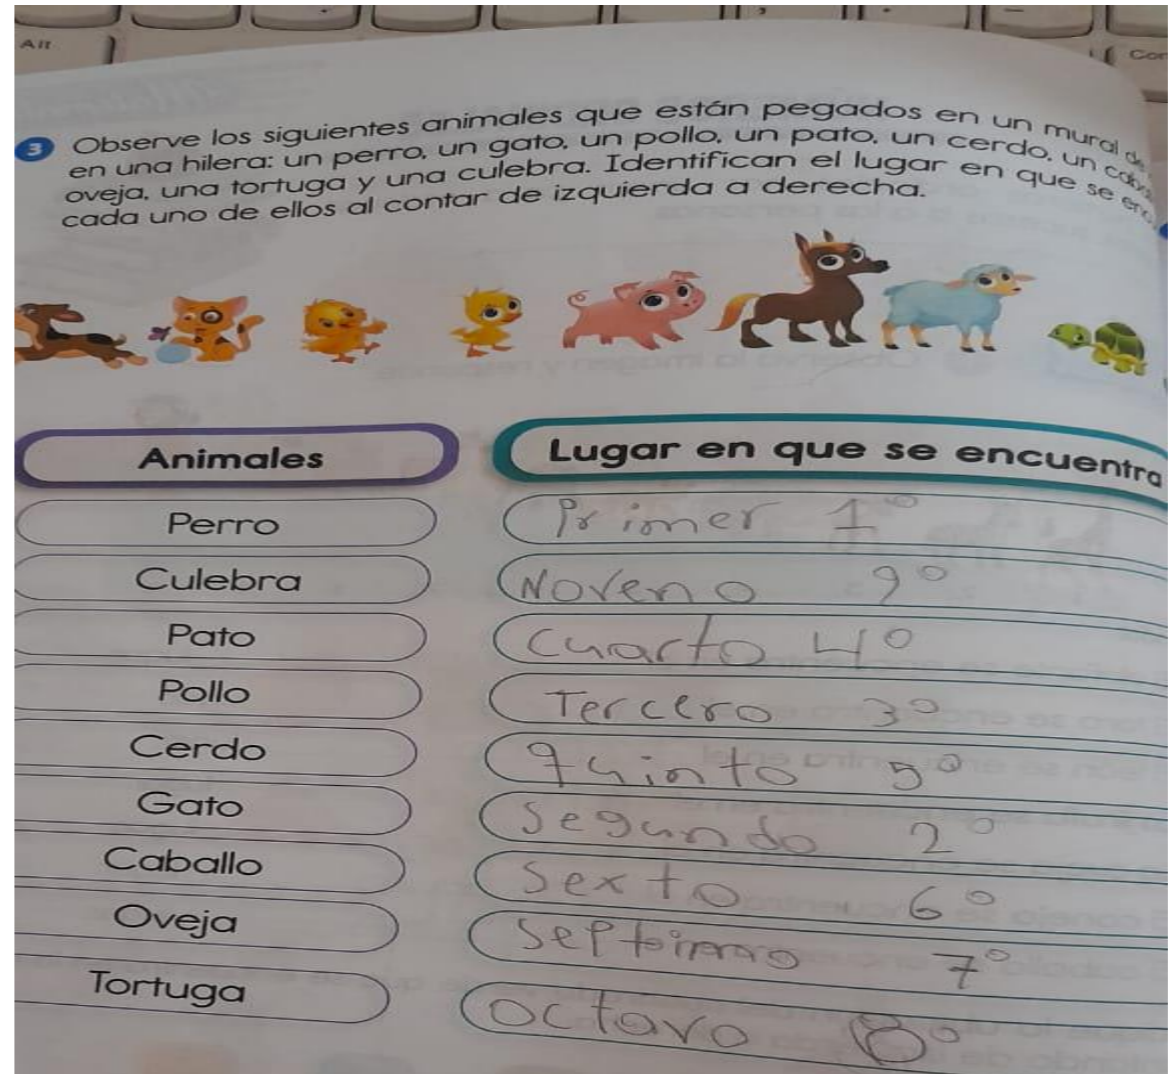 Alt
3 Observe los siguientes animales que están pegados en un mural de
en una hilera: un perro, un gato, un pollo, un pato, un cerdo, un
oveja, una tortuga y una culebra. Identifican el lugar en que se
cada uno de ellos al contar de izquierda a derecha.
Animales Lugar en que se encuentra
Perro Primer 1°
Culebra Noveno 9°
Pato Cuarto 4°
Pollo Tercero 3°
Cerdo quinto 5°
Gato Segundo 2°
Caballo Sexto 6°
Oveja Septimo 7°
Tortuga octavo 8°